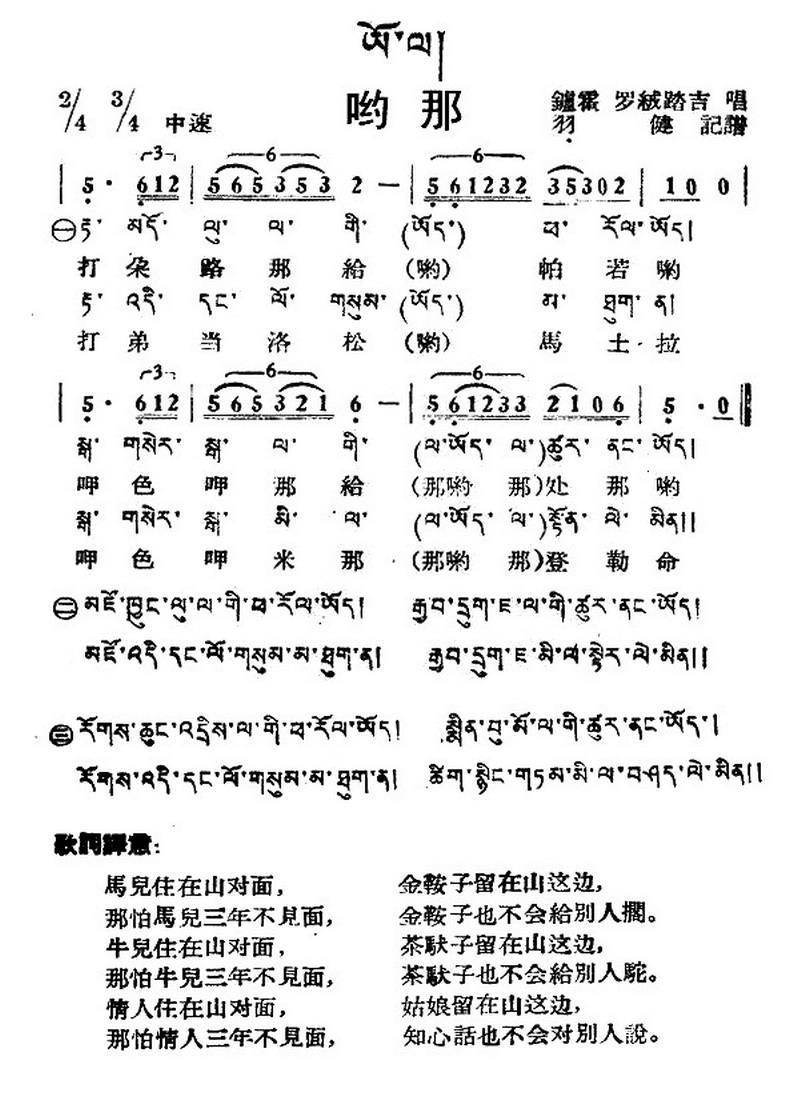 ཨོ་ལ།
哟那
2/4 3/4 中速
鑪霍 罗絨踏吉 唱
羽 健 記譜
| 5 · 612 | 565353 2 — | 561232 35302 | 100 0 |
㊀ རྟ་ མདོ་ ལུ་ ལ་ གི་ (ཨོད་) ཕ་ རོལ་ཨོད།
打 朶 路 那 給 (喲) 帕 若 喲
རྟ་ འདི་ དང་ ལོ་ གསུམ་ (ཨོད་) མ་ ཐུག་ ན།
打 弟 当 洛 松 (喲) 馬 土 拉
| 5 · 612 | 565321 6 — | 561233 2106 | 5 · 0 ‖
སྒ་ གསེར་ སྒ་ ལ་ གི་ (ལ་ཨོད་ ལ་) ཚུར་ ནང་ ཨོད།
呷 色 呷 那 給 (那喲 那) 处 那 喲
སྒ་ གསེར་ སྒ་ མི་ ལ་ (ལ་ཨོད་ ལ་) སྟོན་ ལེ་ མིན།།
呷 色 呷 米 那 (那喲 那) 登 勒 命
㊁ མཛོ་ཁྱུང་ལུ་ལ་གི་ཕ་རོལ་ཨོད། རྒྱབ་དྲུག་ཇ་ལ་གི་ཚུར་ནང་ཨོད།
མཛོ་འདི་དང་ལོ་གསུམ་མ་ཐུག་ན། རྒྱབ་དྲུག་ཇ་མི་ལ་སྟེར་ལེ་མིན།།
㊂ རོགས་ཆུང་འདྲིས་ལ་གི་ཕ་རོལ་ཨོད། སྨིན་བུ་མོ་ལ་གི་ཚུར་ནང་ཨོད།
རོགས་འདི་དང་ལོ་གསུམ་མ་ཐུག་ན། ཚིག་སྙིང་གཏམ་མི་ལ་བཤད་ལེ་མིན།།
歌詞譯意:
馬兒住在山对面, 金鞍子留在山这边,
那怕馬兒三年不見面, 金鞍子也不会給別人擱。
牛兒住在山对面, 茶馱子留在山这边,
那怕牛兒三年不見面, 茶馱子也不会給別人駝。
情人住在山对面, 姑娘留在山这边,
那怕情人三年不見面, 知心話也不会对別人說。